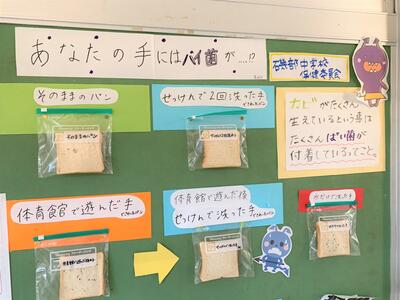 あなたの手にはバイ菌が…!?
磯部中学校
保健委員会
そのままのパン
せっけんで2回洗った手
でさわったパン
カビがたくさん
生えているという事は
たくさんばい菌が
付着しているってこと。
体育館で遊んだ手
でさわったパン
体育館で遊んだ後
せっけんで洗った手
でさわったパン
水だけで洗った手
そのままのパン